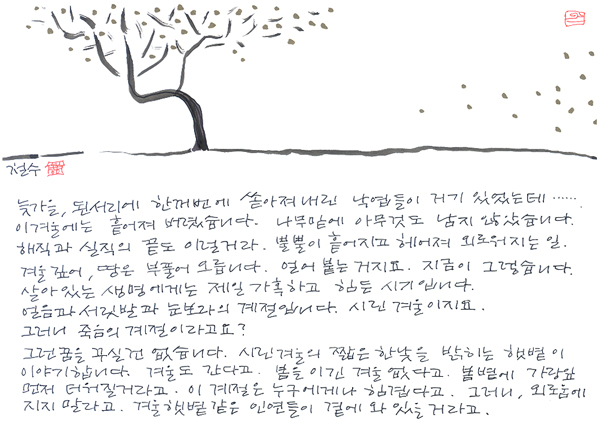 철수
늦가을, 된서리에 한꺼번에 쏟아져내린 낙엽들이 거기 있었는데 ……
이겨울에는 흩어져 버렸습니다. 나무밑에 아무것도 남지 않았습니다.
해직과 실직의 끝도 이럴거라. 뿔뿔이 흩어지고 헤어져 외로워지는 일.
겨울 깊어, 땅은 부풀어 오릅니다. 얼어 붙는 거지요. 지금이 그렇습니다.
살아있는 생명에게는 제일 가혹하고 힘든 시기입니다.
얼음과 서릿발과 눈보라의 계절입니다. 시린 겨울이지요.
그러니 죽음의 계절이라고요?
그런꿈을 꾸실건 없습니다. 시린겨울의 짧은 한낮을 밝히는 햇볕이
이야기합니다. 겨울도 간다고. 봄을 이긴 겨울 없다고. 봄볕에 가랑잎
먼저 더워질거라고. 이 계절은 누구에게나 힘겹다고. 그러니, 외로움에
지지 말라고. 겨울햇볕같은 인연들이 곁에 와 있을거라고.